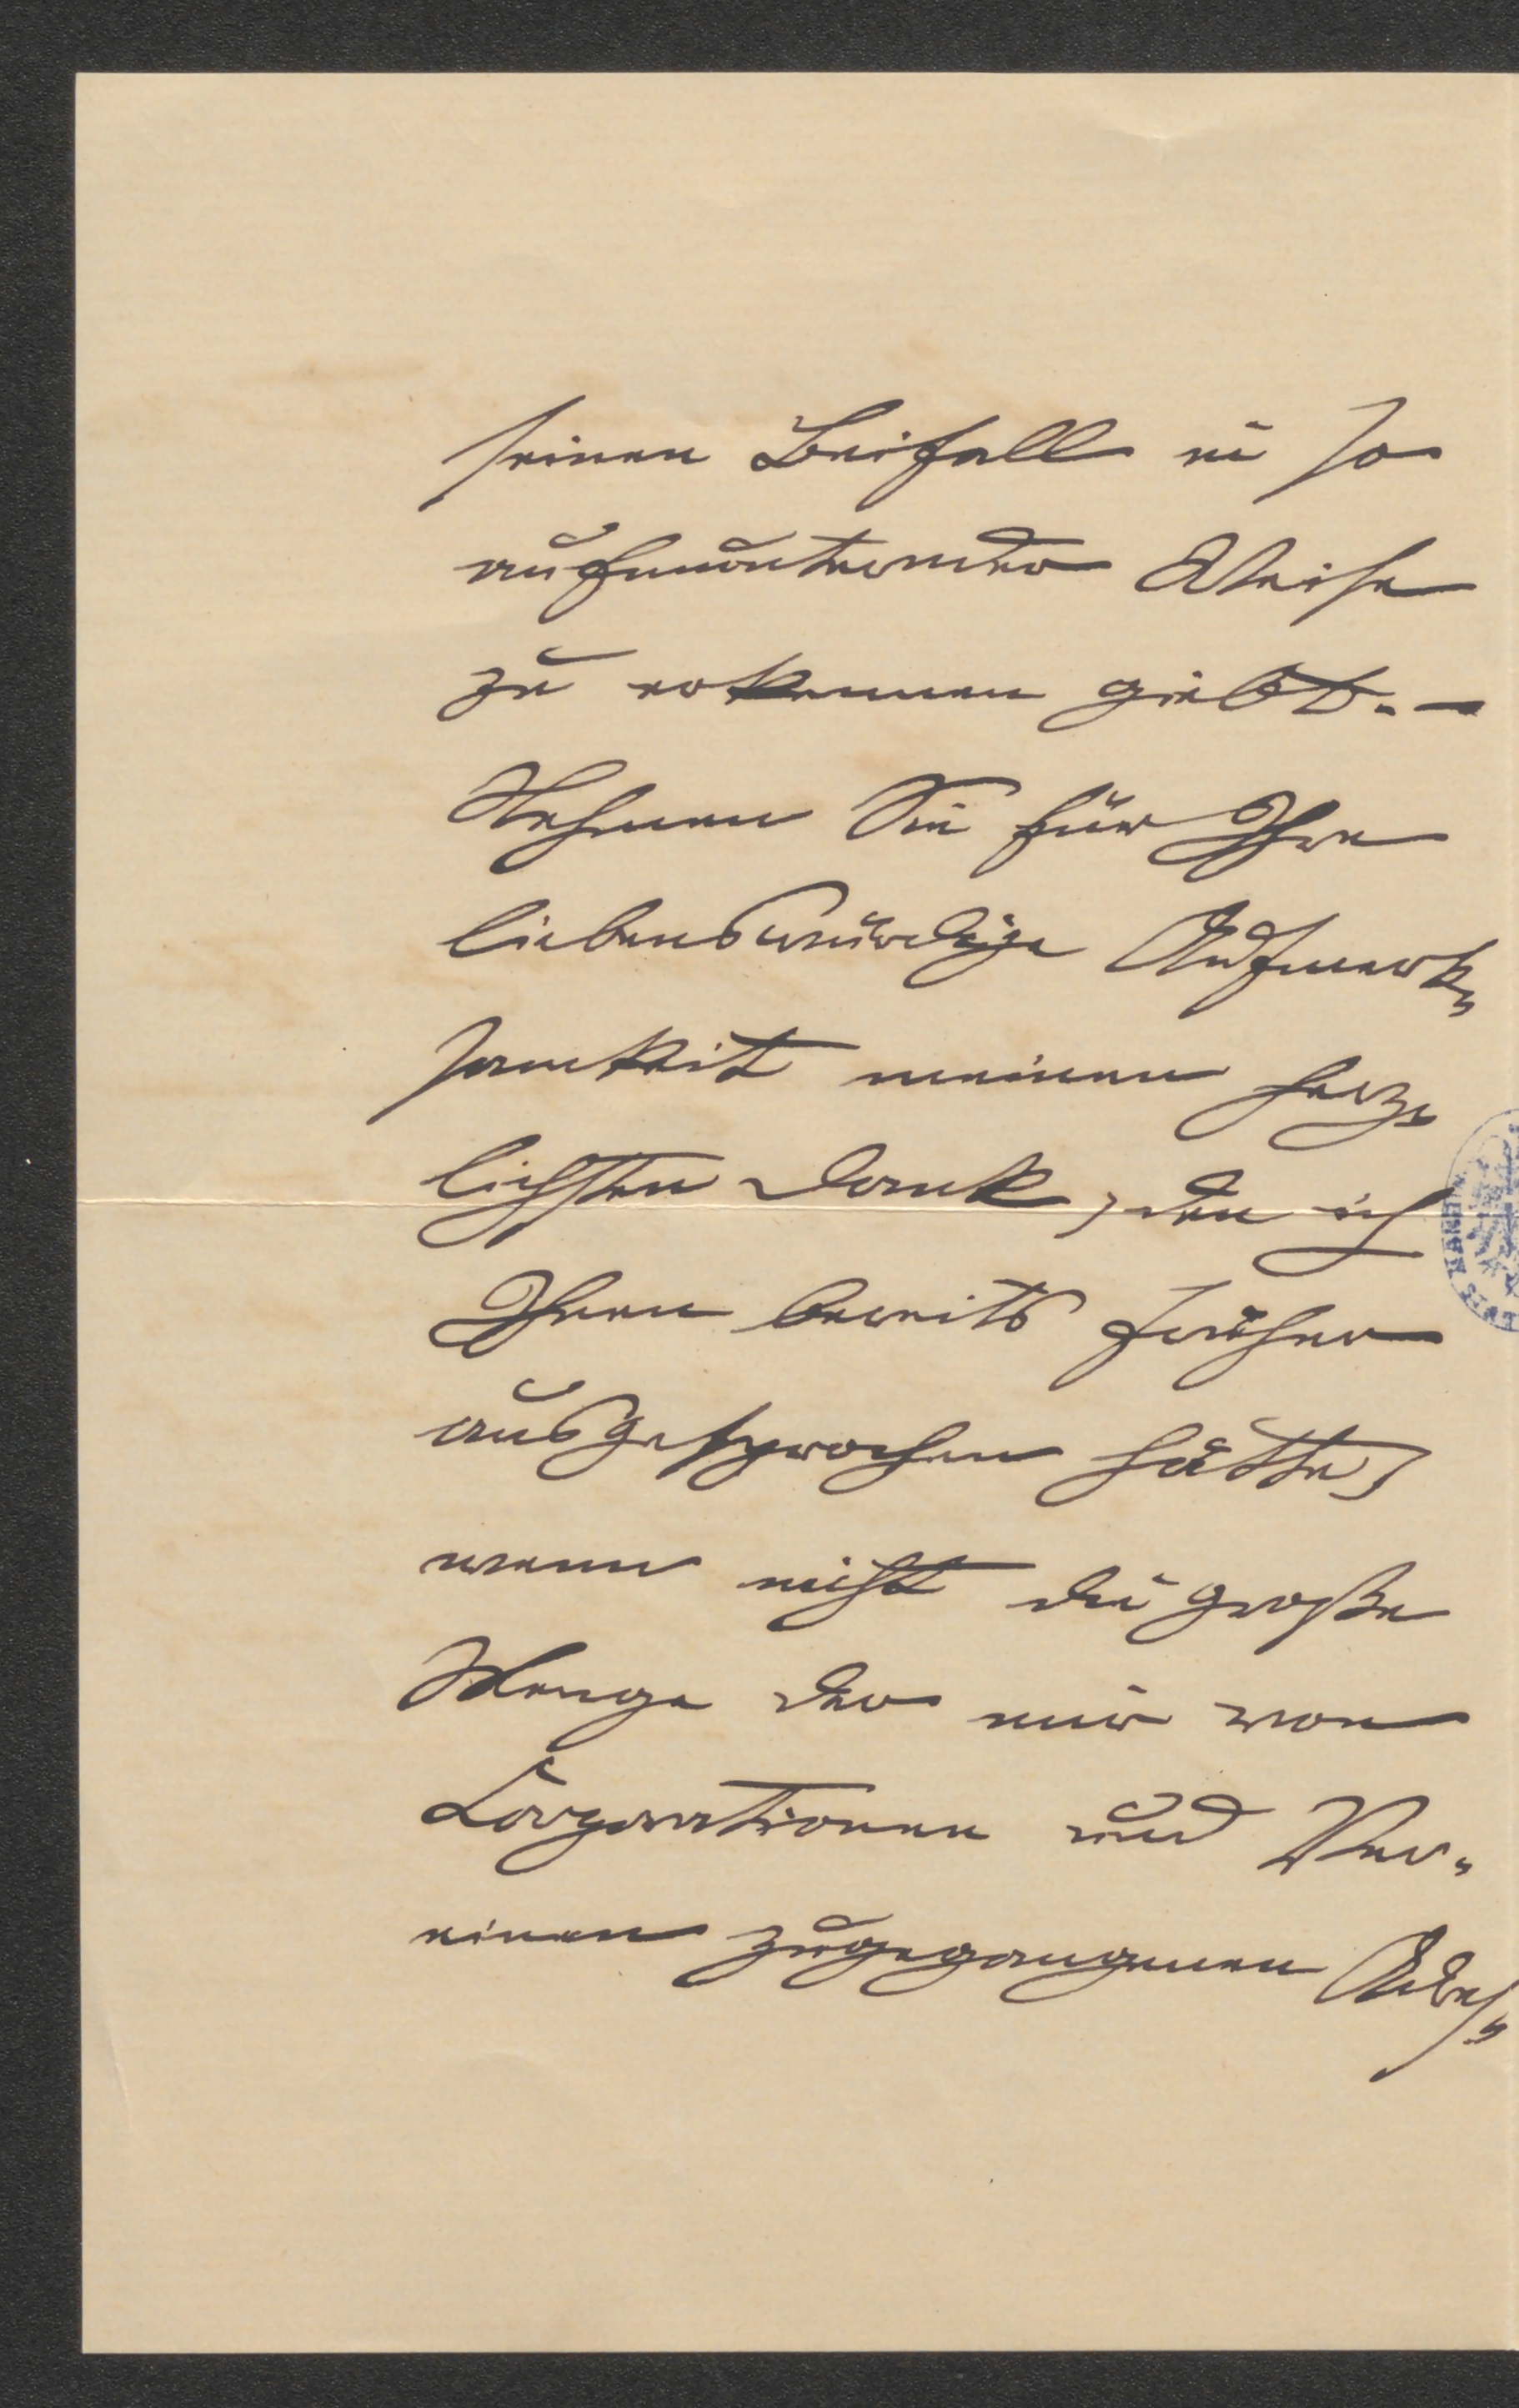 seinen Beifall in so
aufmunternder Weise
zu erkennen giebt. —
Nehmen Sie für Ihre
liebenswürdige Aufmerk-
samkeit meinen herz-
lichsten Dank, den ich
Ihnen bereits früher
ausgesprochen hätte,
wenn nicht die große
Menge der mir von
Corporationen und Ver-
einen zugegangenen Adres-